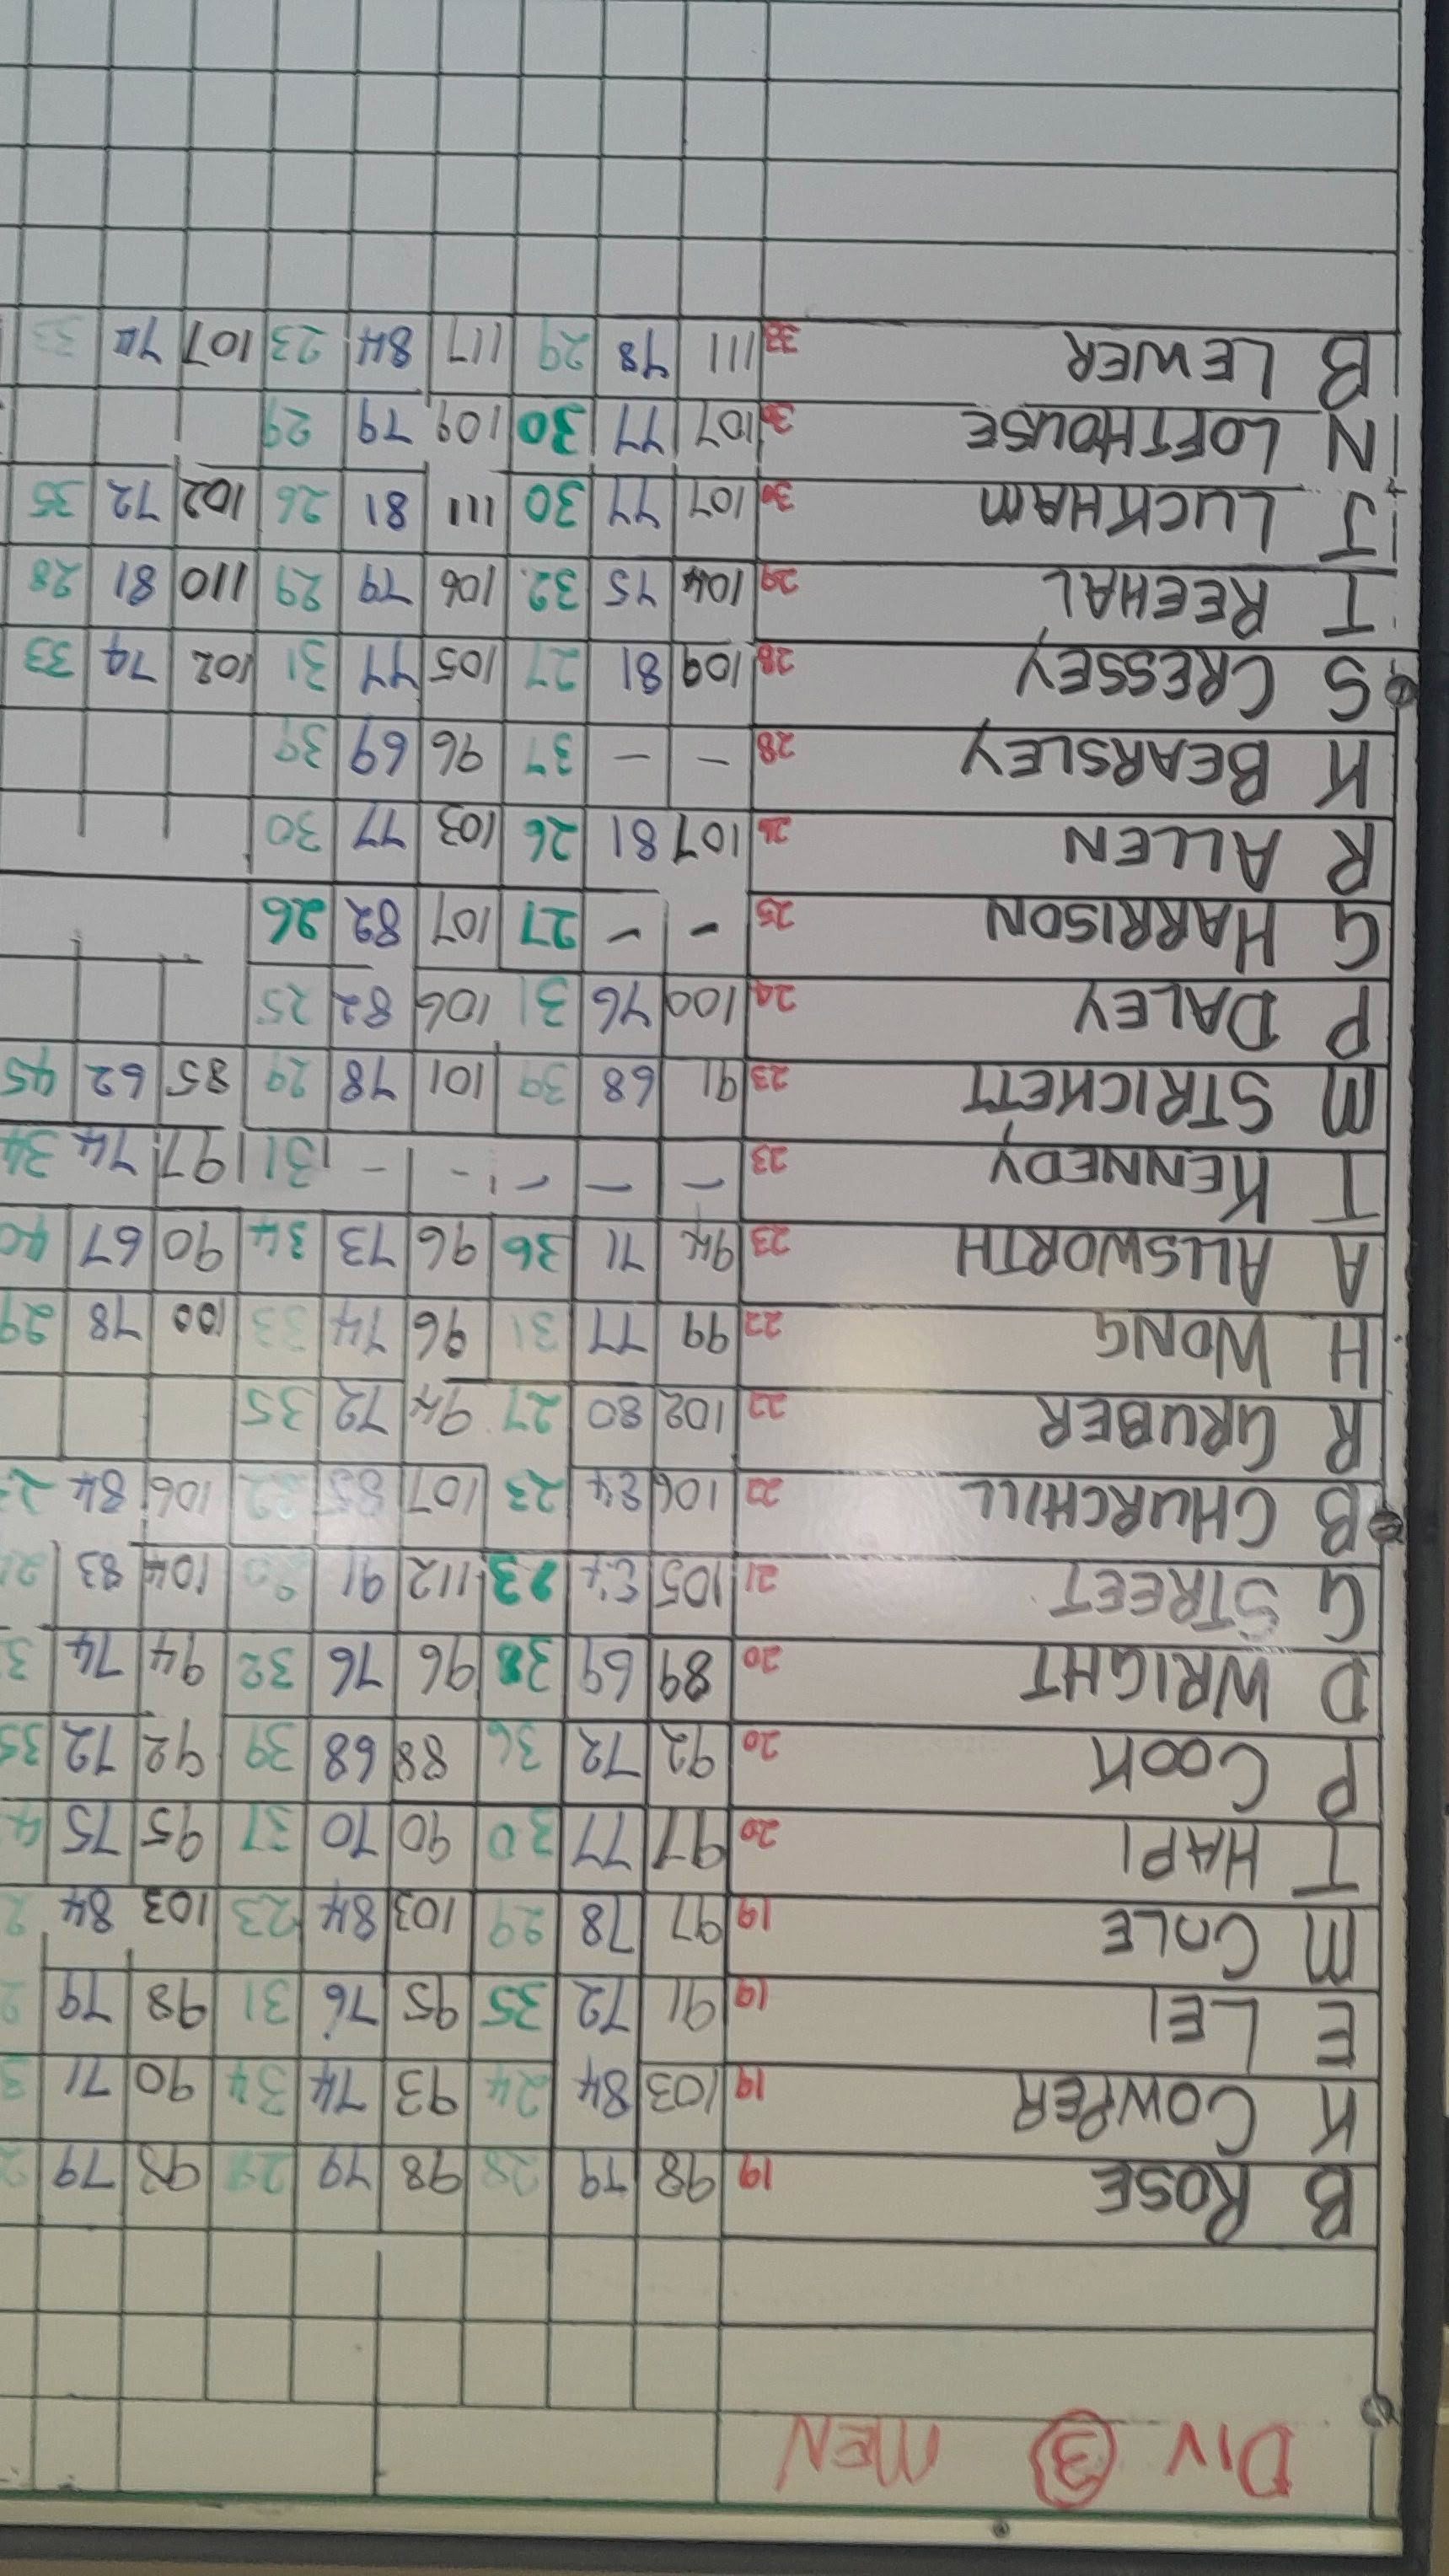 DIV 3 MEN
B ROSE 19 98 79 28 98 79 29 98 79
K COWPER 19 103 84 24 93 74 34 90 71
E LEI 19 91 72 35 95 76 31 98 79
M COLE 19 97 78 29 103 84 23 103 84
T HAPI 20 97 77 30 90 70 37 95 75
P COOK 20 92 72 36 88 68 39 92 72 35
D WRIGHT 20 89 69 38 96 76 32 94 74
G STREET 21 105 84 23 112 91 104 83
B CHURCHILL 22 106 84 23 107 85 22 106 84
R GRUBER 22 102 80 27 94 72 35
H WONG 22 99 77 31 96 74 33 100 78 29
A ALLSWORTH 23 94 71 36 96 73 34 90 67 40
T KENNEDY 23 - - - - - 31 97 74 34
M STRICKETT 23 91 68 39 101 78 29 85 62 45
P DALEY 24 100 76 31 106 82 25
G HARRISON 25 - - 27 107 82 26
R ALLEN 26 107 81 26 103 77 30
K BEARSLEY 28 - - 37 96 69 39
S CRESSEY 28 109 81 27 105 77 31 102 74 33
T REEHAL 29 104 75 32 106 79 29 110 81 28
J LUCKHAM 30 107 77 30 111 81 26 102 72 35
N LOFTHOUSE 30 107 77 30 109 79 29
B LEWER 33 111 78 29 117 84 23 107 74 33